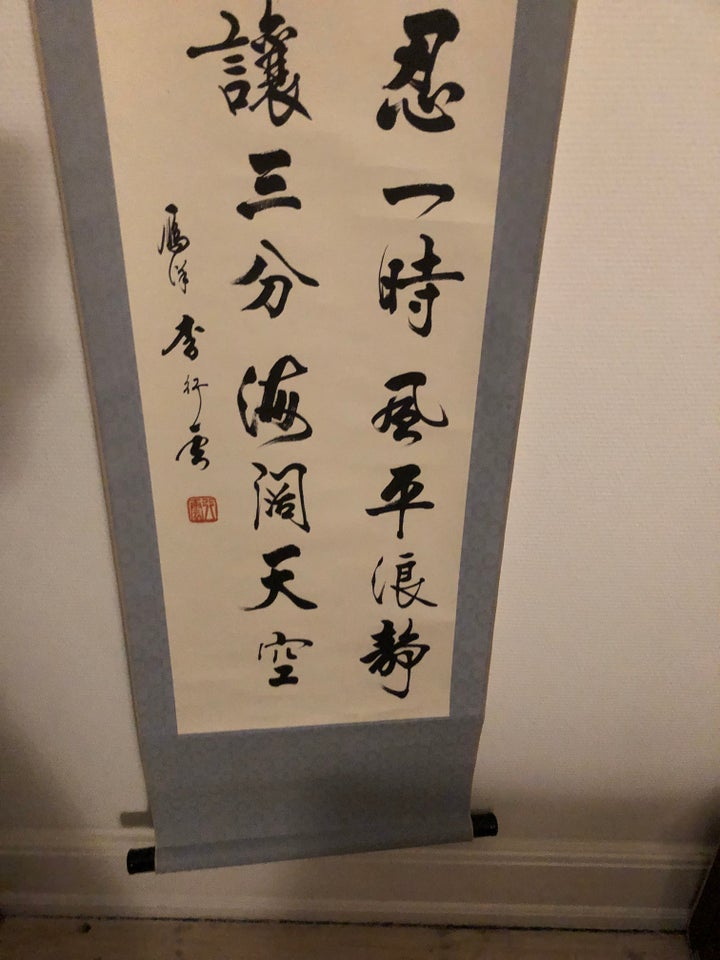 忍一時風平浪靜
讓三分海闊天空
李行雲